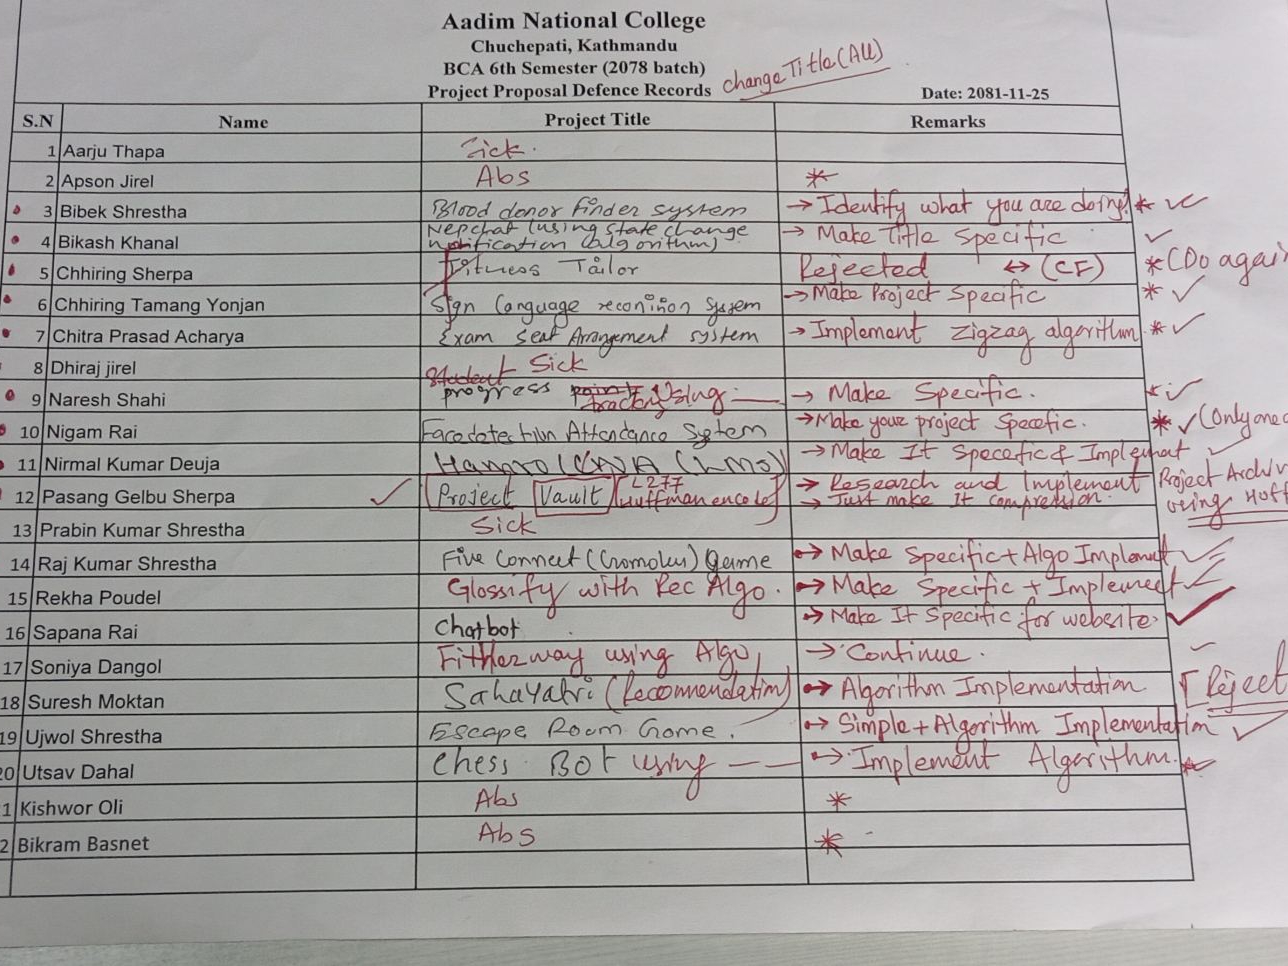 Aadim National College
Chuchepati, Kathmandu
BCA 6th Semester (2078 batch)
Project Proposal Defence Records
change Title (All)
Date: 2081-11-25
S.N Name Project Title Remarks
1 Aarju Thapa Sick.
2 Apson Jirel Abs *
3 Bibek Shrestha Blood donor finder system → Identify what you are doing! * ✓
4 Bikash Khanal Nepchat (using state change notification algorithm) → Make Title Specific ✓
5 Chhiring Sherpa Fitness Tailor Rejected ↔ (CF) * (Do again
6 Chhiring Tamang Yonjan Sign Language System → Make Project Specific * ✓
7 Chitra Prasad Acharya Exam Seat Arrangement system → Implement zigzag algorithm * ✓
8 Dhiraj jirel Sick
9 Naresh Shahi Student progress tracking Using — → Make Specific. * ✓
10 Nigam Rai Facedetection Attendance System → Make your project Specefic. * ✓ (Only one
11 Nirmal Kumar Deuja Hamro (LMS) → Make It Specefic & ✓
12 Pasang Gelbu Sherpa ✓ Project Vault LZ77 Huffman encode → Research and Implement
→ Just make It compression. Project Archiv
using Huff
13 Prabin Kumar Shrestha Sick
14 Raj Kumar Shrestha Five Connect (Gomoku) Game → Make Specific + Algo Implement ✓
15 Rekha Poudel Glossify with Rec Algo. → Make Specific + Implement ✓
16 Sapana Rai Chatbot → Make It Specific for website. ✓
17 Soniya Dangol using Algo, → Continue.
18 Suresh Moktan Sahayatri (Recommendation) → Algorithm Implementation [Reject
19 Ujwol Shrestha Escape Room Game. → Simple + Algorithm Implementation ✓
20 Utsav Dahal Chess Bot using — — → Implement Algorithm. *
1 Kishwor Oli Abs *
2 Bikram Basnet Abs *